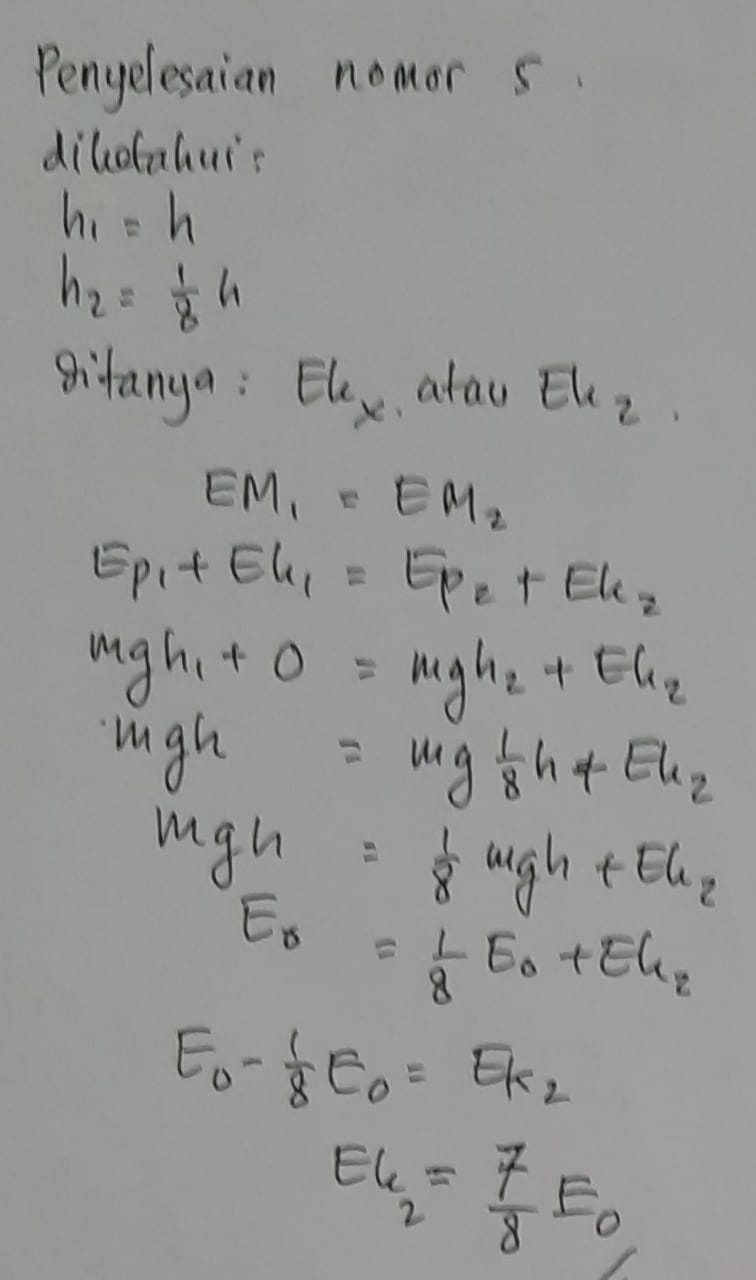 Penyelesaian nomor 5.
diketahui:
h₁ = h
h₂ = 1/8 h
ditanya: Ekₓ. atau Ek₂.
EM₁ = EM₂
Ep₁ + Ek₁ = Ep₂ + Ek₂
mgh₁ + 0 = mgh₂ + Ek₂
mgh = mg 1/8 h + Ek₂
mgh = 1/8 mgh + Ek₂
E₀ = 1/8 E₀ + Ek₂
E₀ - 1/8 E₀ = Ek₂
Ek₂ = 7/8 E₀